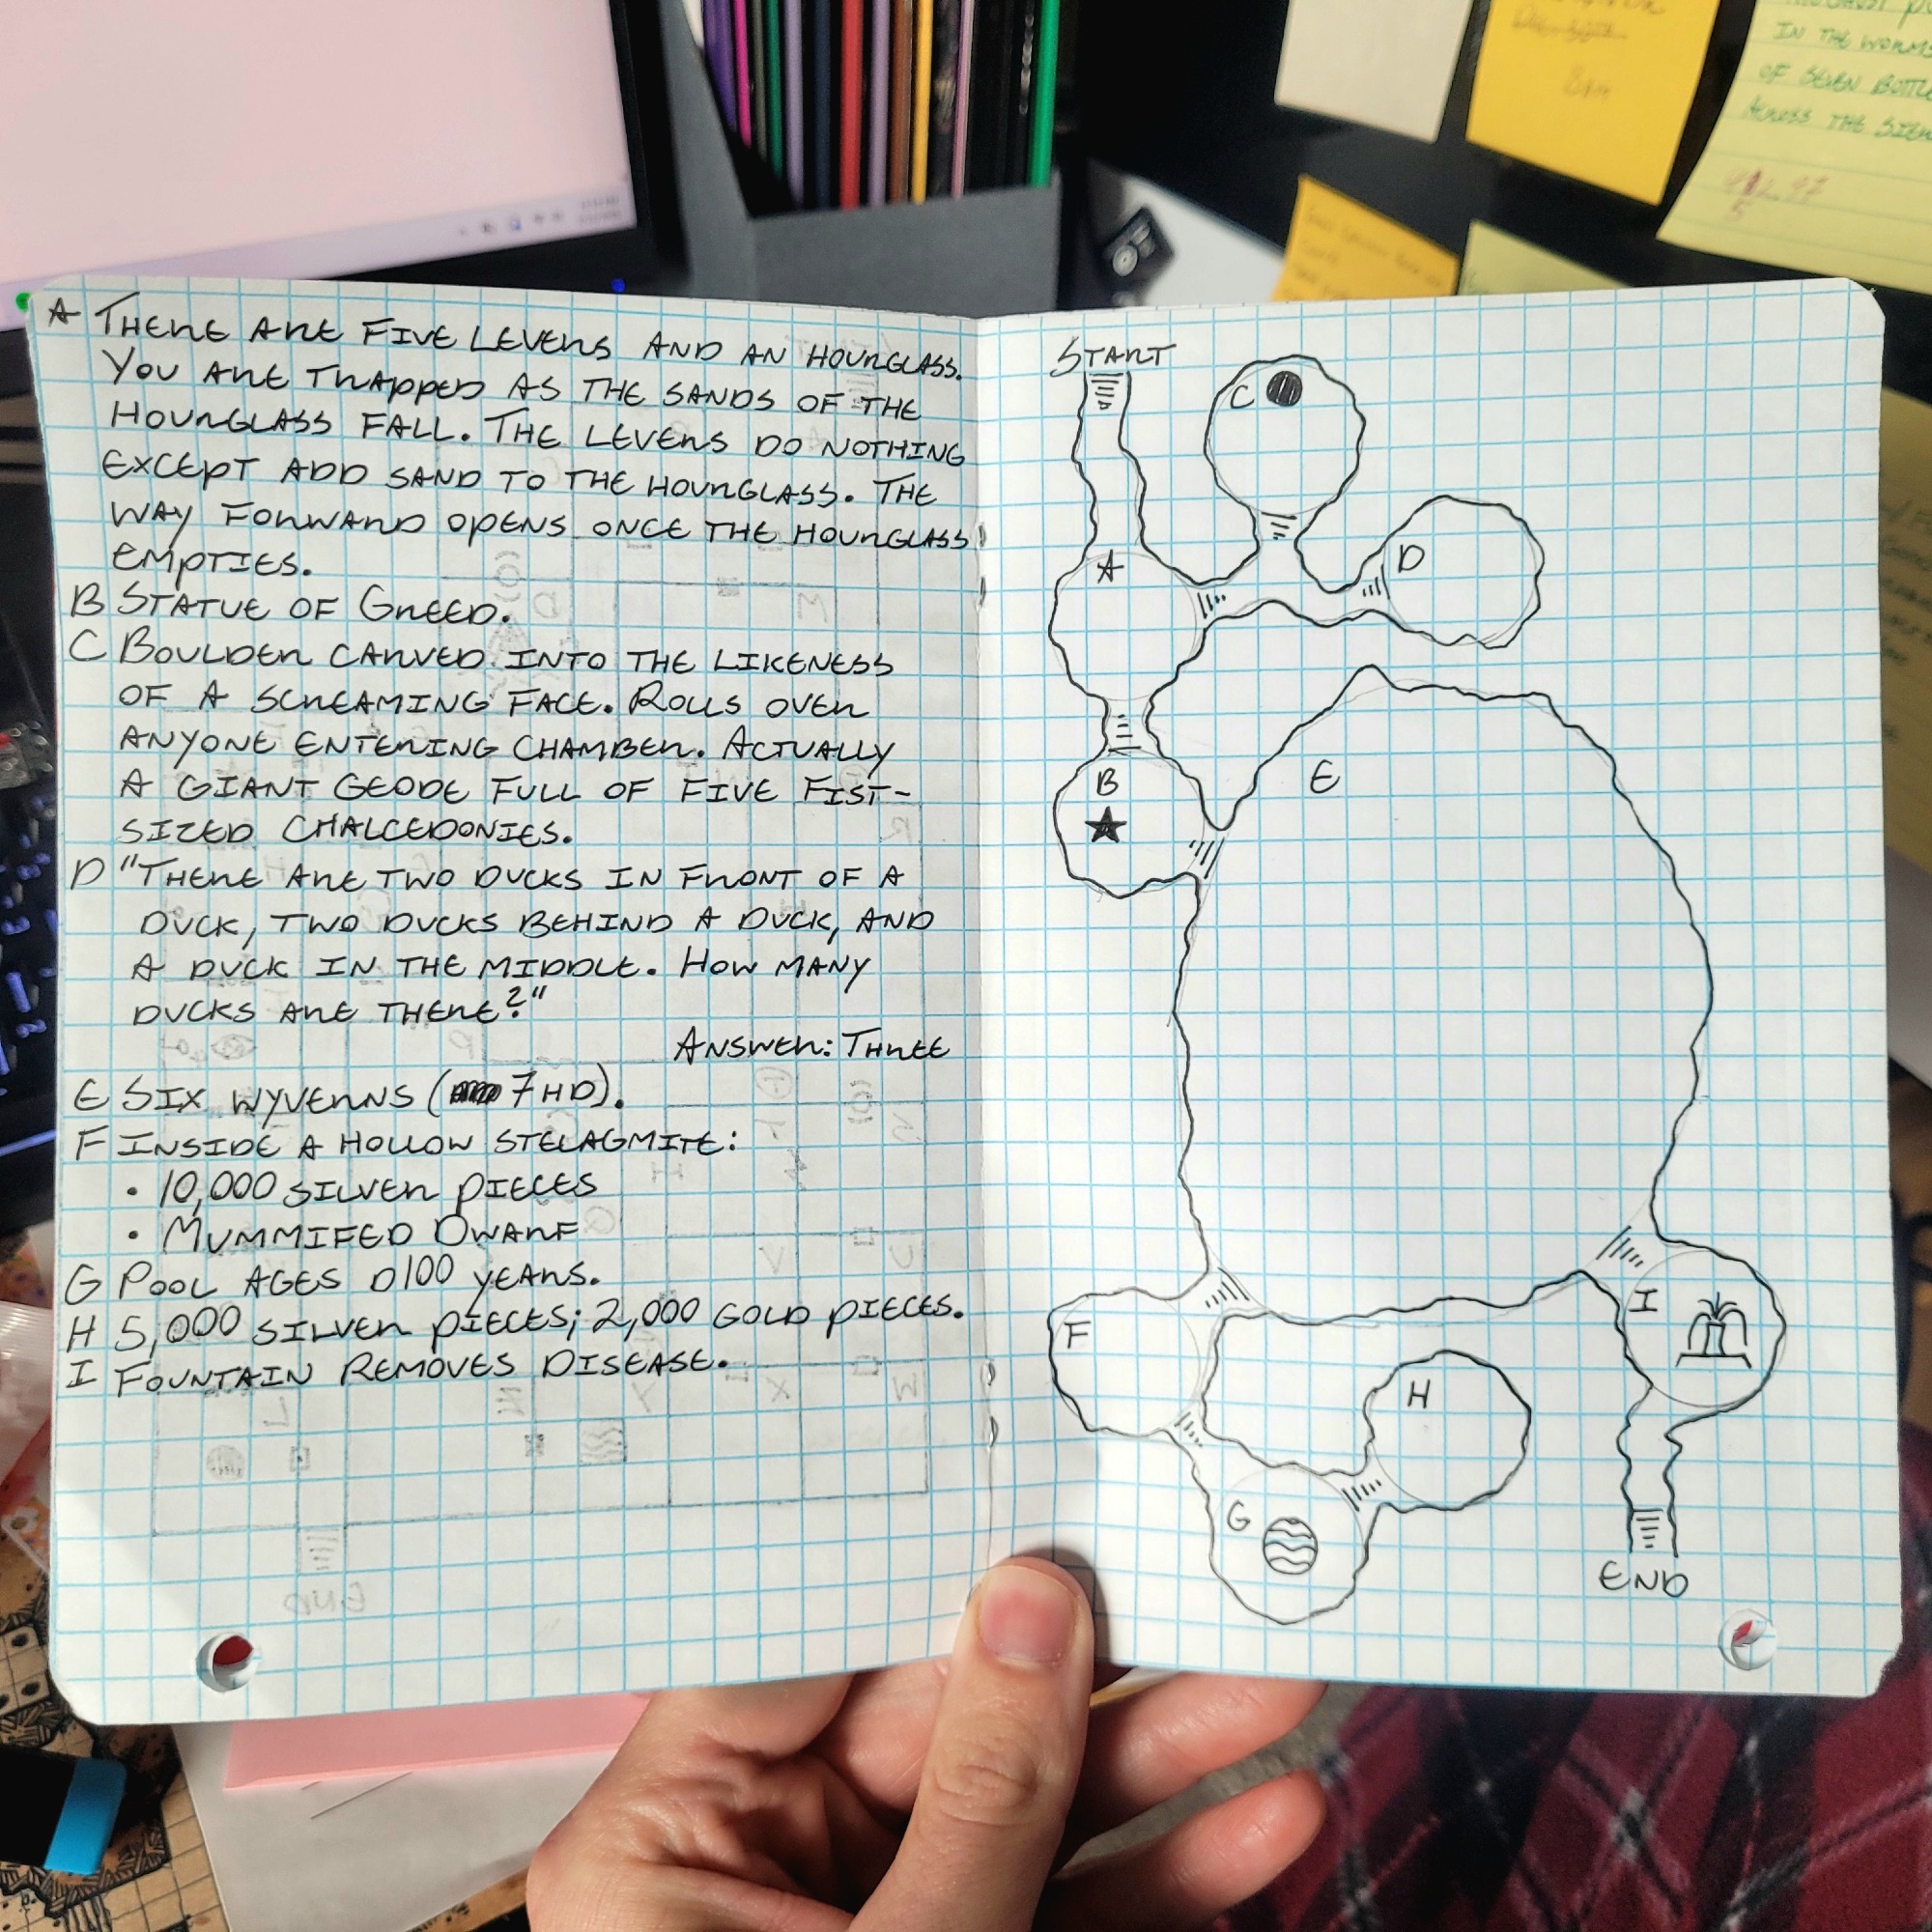 A THERE ARE FIVE LEVERS AND AN HOURGLASS.
YOU ARE TRAPPED AS THE SANDS OF THE
HOURGLASS FALL. THE LEVERS DO NOTHING
EXCEPT ADD SAND TO THE HOURGLASS. THE
WAY FORWARD OPENS ONCE THE HOURGLASS
EMPTIES.
B STATUE OF GREED.
C BOULDER CARVED INTO THE LIKENESS
OF A SCREAMING FACE. ROLLS OVER
ANYONE ENTERING CHAMBER. ACTUALLY
A GIANT GEODE FULL OF FIVE FIST-
SIZED CHALCEDONIES.
D "THERE ARE TWO DUCKS IN FRONT OF A
DUCK, TWO DUCKS BEHIND A DUCK, AND
A DUCK IN THE MIDDLE. HOW MANY
DUCKS ARE THERE?"
ANSWER: THREE
E SIX WYVERNS (7 HD).
F INSIDE A HOLLOW STELAGMITE:
• 10,000 SILVER PIECES
• MUMMIFED DWARF
G POOL AGES D100 YEARS.
H 5,000 SILVER PIECES; 2,000 GOLD PIECES.
I FOUNTAIN REMOVES DISEASE.
START
C
A
D
B
E
F
I
H
G
END
IN THE WORMS
OF SEVEN BOTTLE
ACROSS THE